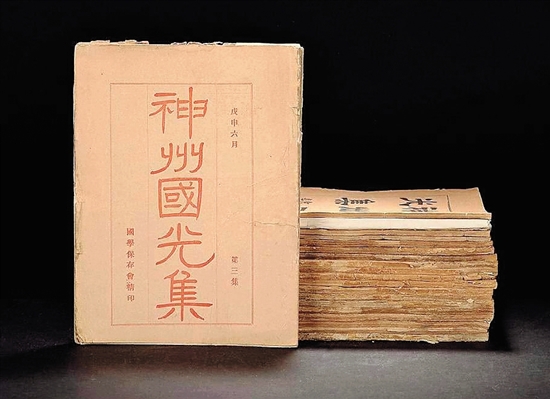 戊申六月
第三集
神州國光集
國學保存會精印